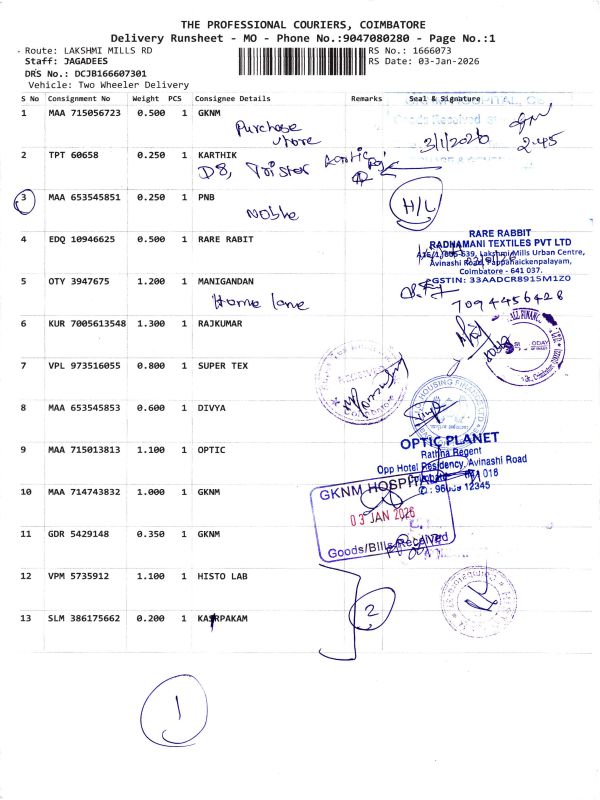 THE PROFESSIONAL COURIERS, COIMBATORE
Delivery Runsheet - MO - Phone No.:9047080280 - Page No.:1
Route: LAKSHMI MILLS RD
RS No.: 1666073
Staff: JAGADEES
RS Date: 03-Jan-2026
DRS No.: DCJB166607301
Vehicle: Two Wheeler Delivery
S No Consignment No Weight PCS Consignee Details Remarks Seal & Signature
1 MAA 715056723 0.500 1 GKNM
Purchase
store
3/1/2026
2.45
2 TPT 60658 0.250 1 KARTHIK
D8,
3 MAA 653545851 0.250 1 PNB
H/L
4 EDQ 10946625 0.500 1 RARE RABIT
RARE RABBIT
RADHAMANI TEXTILES PVT LTD
Lakshmi Mills Urban Centre,
Avinashi Road, Pappanaickenpalayam,
Coimbatore - 641 037.
GSTIN: 33AADCR8915M1Z0
5 OTY 3947675 1.200 1 MANIGANDAN
Home lane
7094456428
6 KUR 7005613548 1.300 1 RAJKUMAR
7 VPL 973516055 0.800 1 SUPER TEX
8 MAA 653545853 0.600 1 DIVYA
HOUSING FINANCE LTD
9 MAA 715013813 1.100 1 OPTIC
OPTIC PLANET
Rathna Regent
Opp Hotel Residency, Avinashi Road
10 MAA 714743832 1.000 1 GKNM
GKNM HOSPITAL
03 JAN 2026
Goods/Bills Received
11 GDR 5429148 0.350 1 GKNM
12 VPM 5735912 1.100 1 HISTO LAB
2
13 SLM 386175662 0.200 1 KASRPAKAM
1